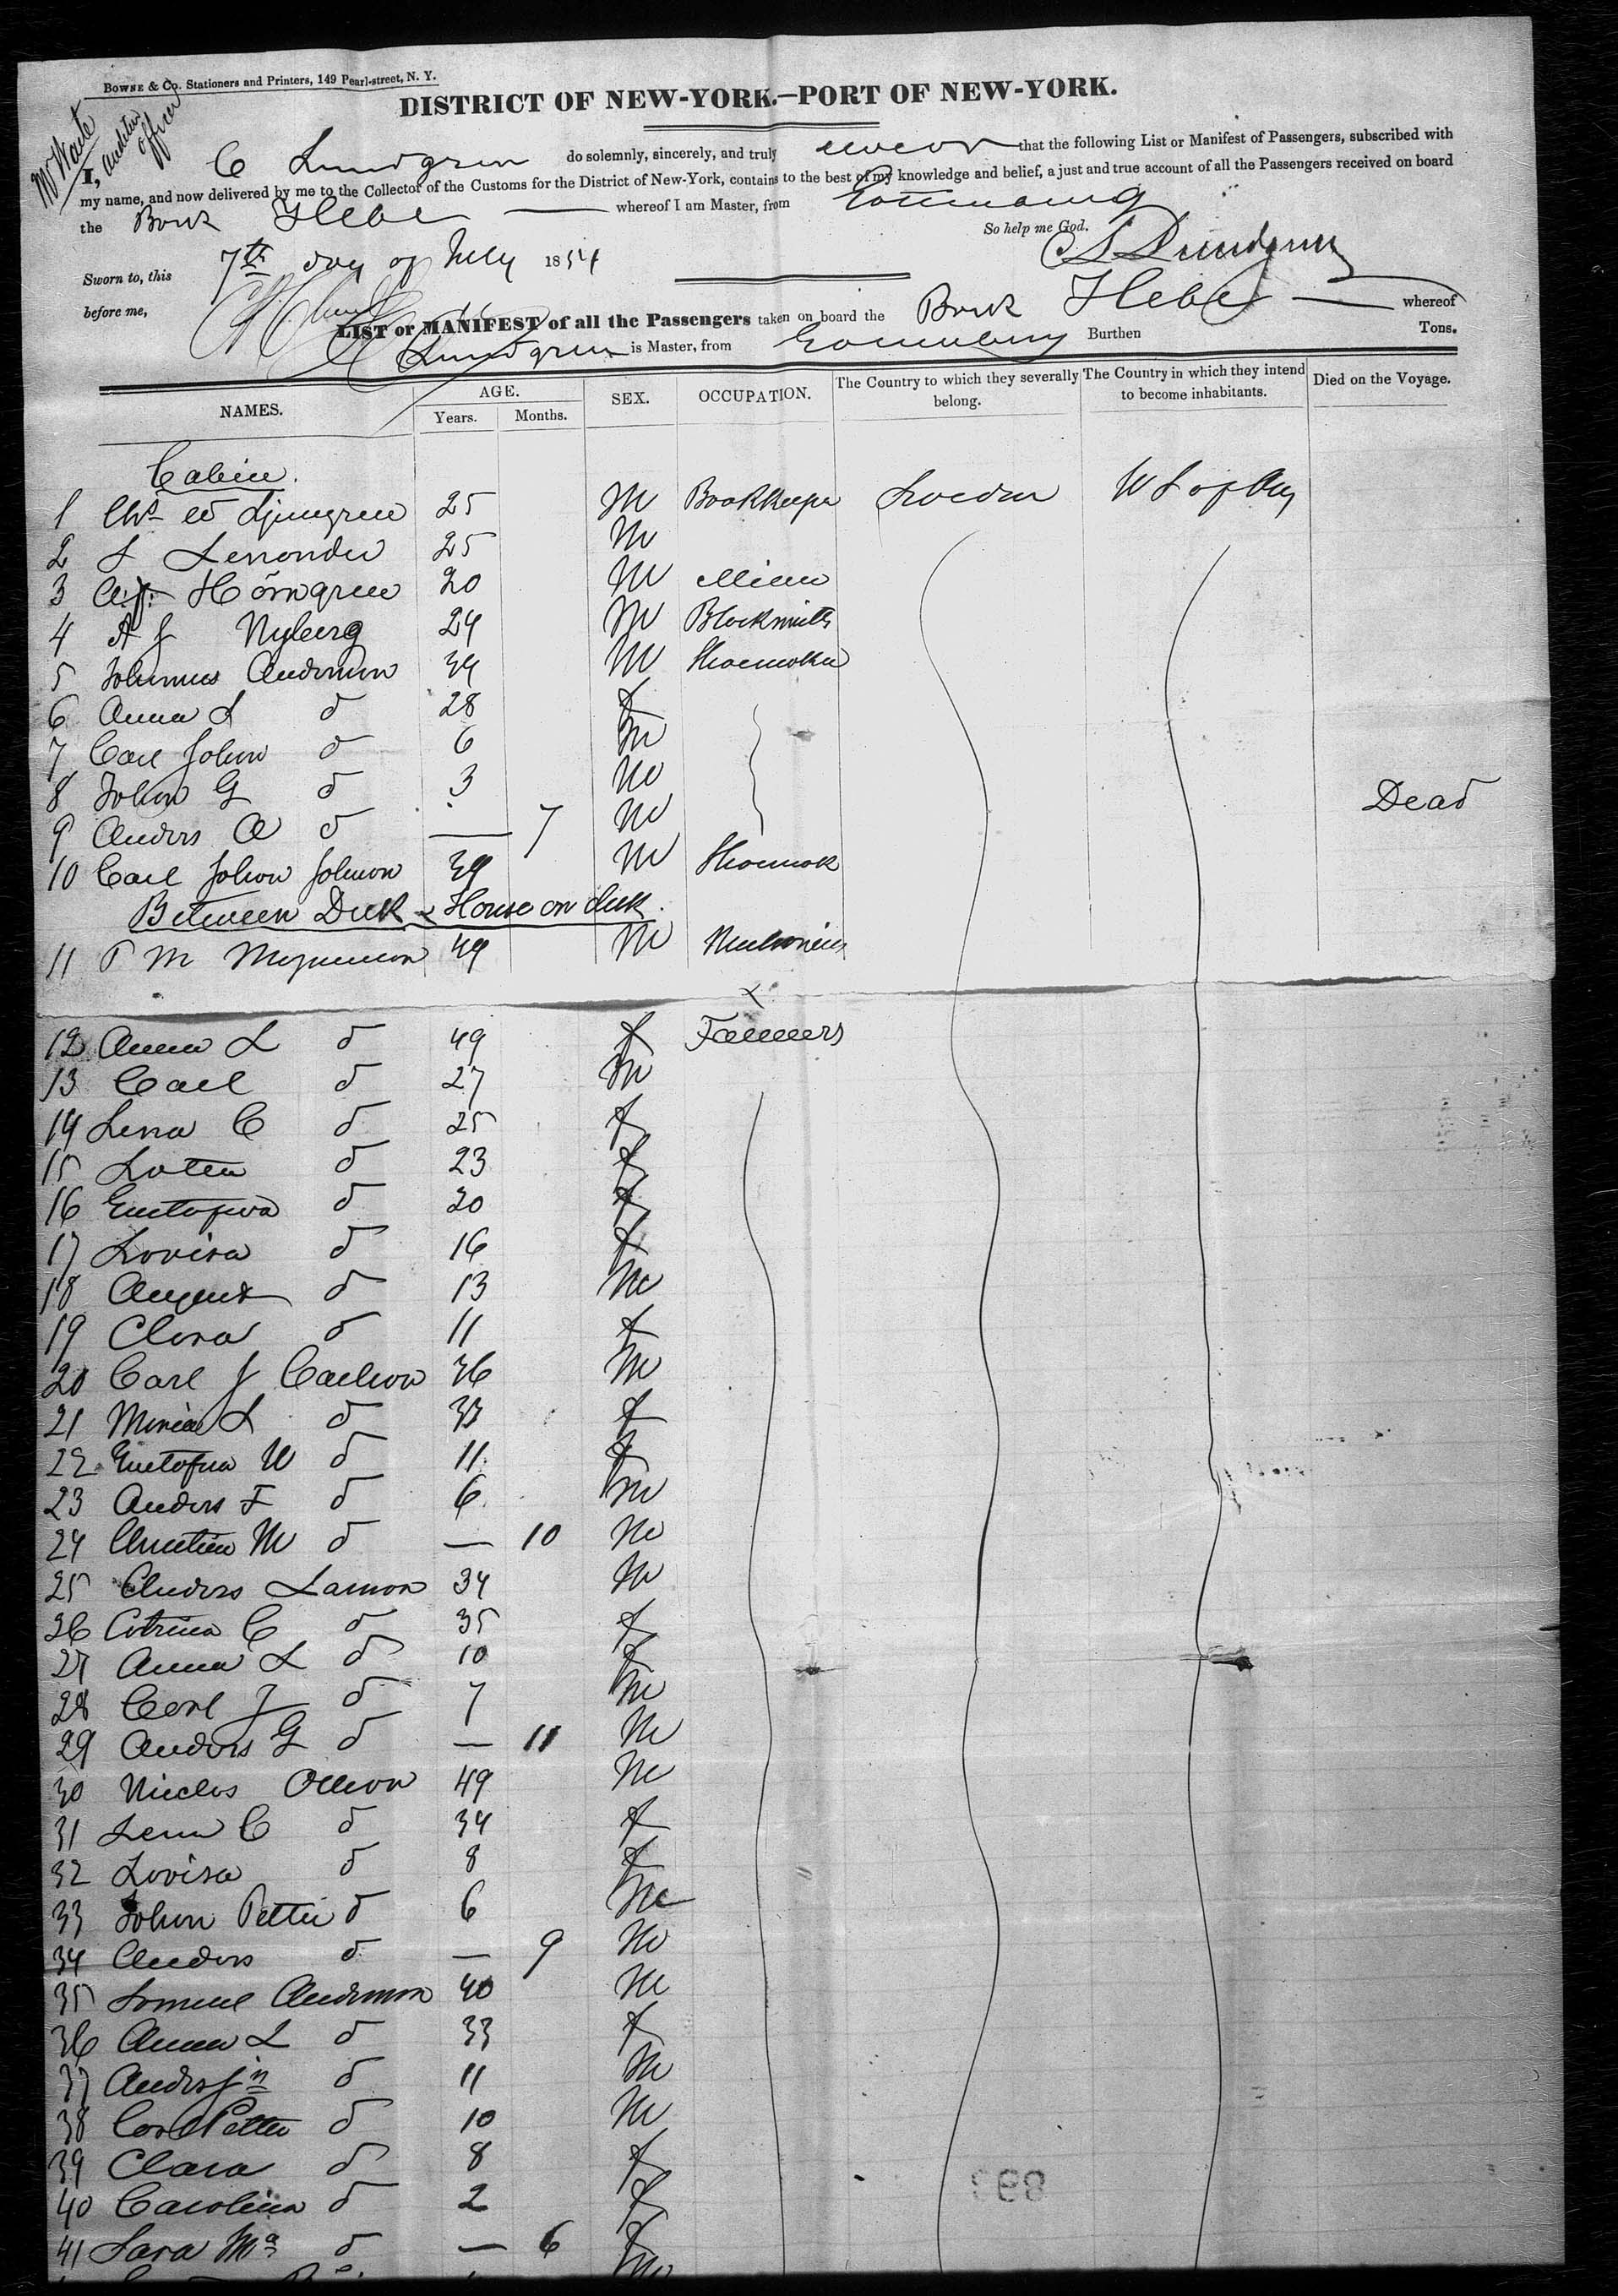 BOWNE & CO. Stationers and Printers, 149 Pearl-street, N. Y.
DISTRICT OF NEW-YORK.—PORT OF NEW-YORK.
I, C Lundgren do solemnly, sincerely, and truly swear that the following List or Manifest of Passengers, subscribed with
my name, and now delivered by me to the Collector of the Customs for the District of New-York, contains to the best of my knowledge and belief, a just and true account of all the Passengers received on board
the Bark Hebe whereof I am Master, from Gottenburg
So help me God.
Sworn to, this 7th day of July 1854
before me,
LIST or MANIFEST of all the Passengers taken on board the Bark Hebe whereof
Lundgren is Master, from Gottenburg Burthen Tons.
NAMES. AGE. Years. Months. SEX. OCCUPATION. The Country to which they severally belong. The Country in which they intend to become inhabitants. Died on the Voyage.
Cabin.
1 Ljungren 25 M Bookkeeper Sweden U S of
2 25 M
3 Horngren 20 M
4 A J Nyberg 24 M Blacksmith
5 Johannes Anderson 34 M Shoemaker
6 Anna L d 28 f
7 Carl John d 6 M
8 John G d 3 M Dead
9 Anders A d — 7 M
10 Carl Johan Johnson 39 M Shoemak
Between Deck & House on deck.
11 P M 49 M
12 Anna L d 49 f Farmers
13 Carl d 27 M
14 Lena C d 25 f
15 d 23 f
16 d 20 f
17 Lovisa d 16 f
18 August d 13 M
19 Clara d 11 f
20 Carl J Carlson 36 M
21 Maria L d 33 f
22 d 11 f
23 Anders F d 6 M
24 M d — 10 M
25 Anders Larson 34 M
26 Catrina C d 35 f
27 Anna L d 10 f
28 Carl J d 7 M
29 Anders G d — 11 M
30 Niclos Olleson 49 M
31 Lena C d 34 f
32 Lovisa d 8 f
33 John Petter d 6 M
34 Anders d — 9 M
35 Samuel Anderson 40 M
36 Anna L d 33 f
37 Anders Jn d 11 M
38 Carl Petter d 10 M
39 Clara d 8 f
40 Carolina d 2 f
41 Sara Ma d — 6 f